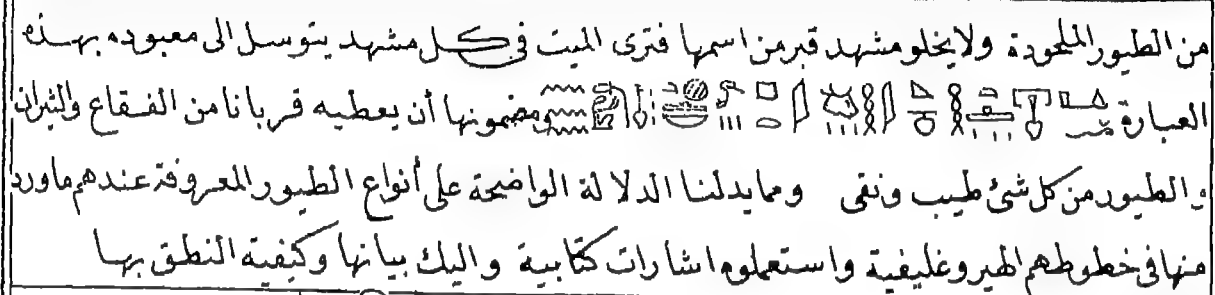 من الطيور الملحودة ولا يخلو مشهد قبر من اسمها فترى الميت في كل مشهد يتوسل الى معبوده بهذه
العبارة ومضمونها أن يعطيه قربانا من الفقاع والثيران
والطيور من كل شئ طيب ونقى ومما يدلنا الدلالة الواضحة على أنواع الطيور المعروفة عندهم ما ورد
منها فى خطوطهم الهيروغليفية واستعملوه اشارات كتابية واليك بيانها وكيفية النطق بها